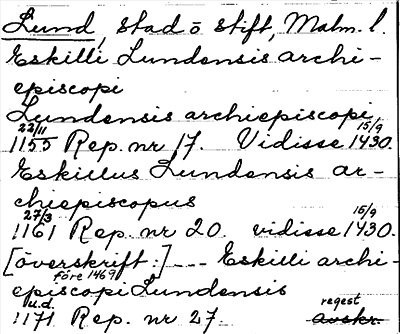 Lund, stad o stift, Malm. l.
Eskilli Lundensis archi-
episcopi
Lundensis archiepiscopi
22/11 15/9
1155 Rep. nr 17. Vidisse 1430.
Eskillus Lundensis ar-
chiepiscopus
27/3 15/9
1161 Rep. nr 20. vidisse 1430.
[överskrift:] --- Eskilli archi-
före 1469
episcopi Lundensis
u.d. regest
1171 Rep. nr 27. avskr.